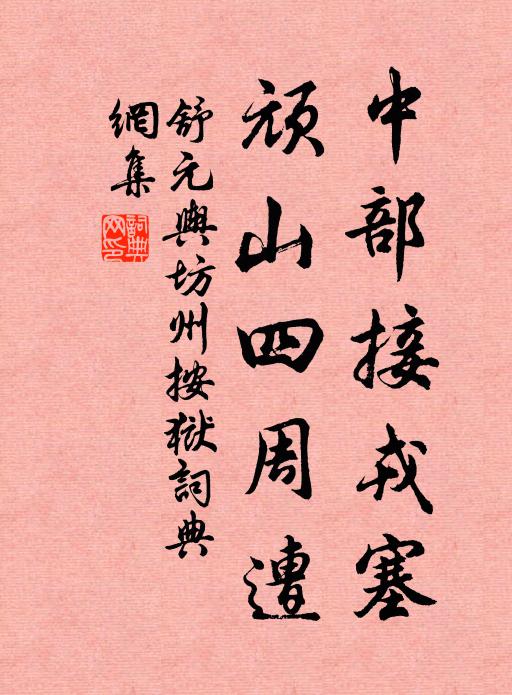 中部接戎塞
頑山四周遭
舒元輿坊州按獄詞典
網集
詞典網印